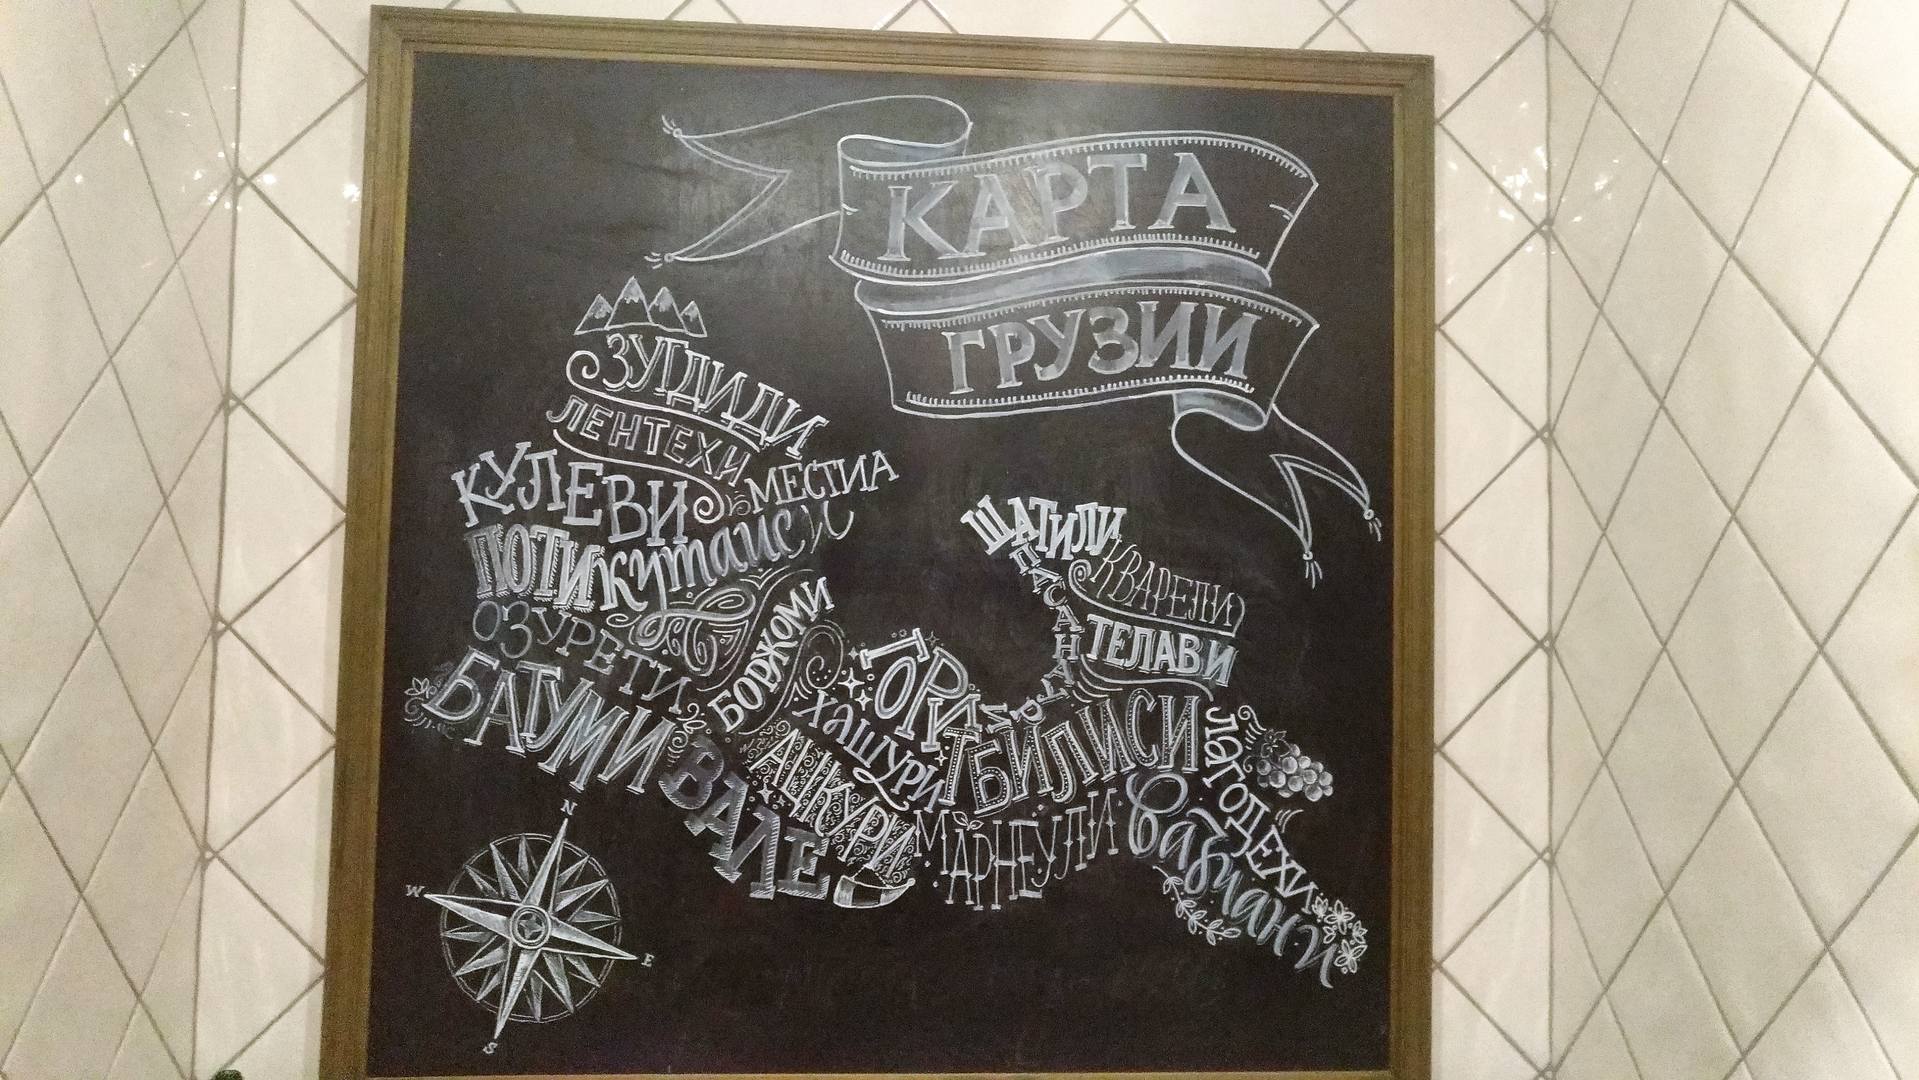 КАРТА
ГРУЗИИ
ЗУГДИДИ
ЛЕНТЕХИ
КУЛЕВИ
МЕСТИА
ПОТИ
кутаиси
ОЗУРЕТИ
БОРЖОМИ
БАТУМИ
ШАТИЛИ
ПАСАНАУРИ
КВАРЕЛИ
ТЕЛАВИ
ГОРИ
ХАШУРИ
ТБИЛИСИ
ЛАГОДЕХИ
ВАЛЕ
АЦКУРИ
МАРНЕУЛИ
вазиани
N
W
E
S